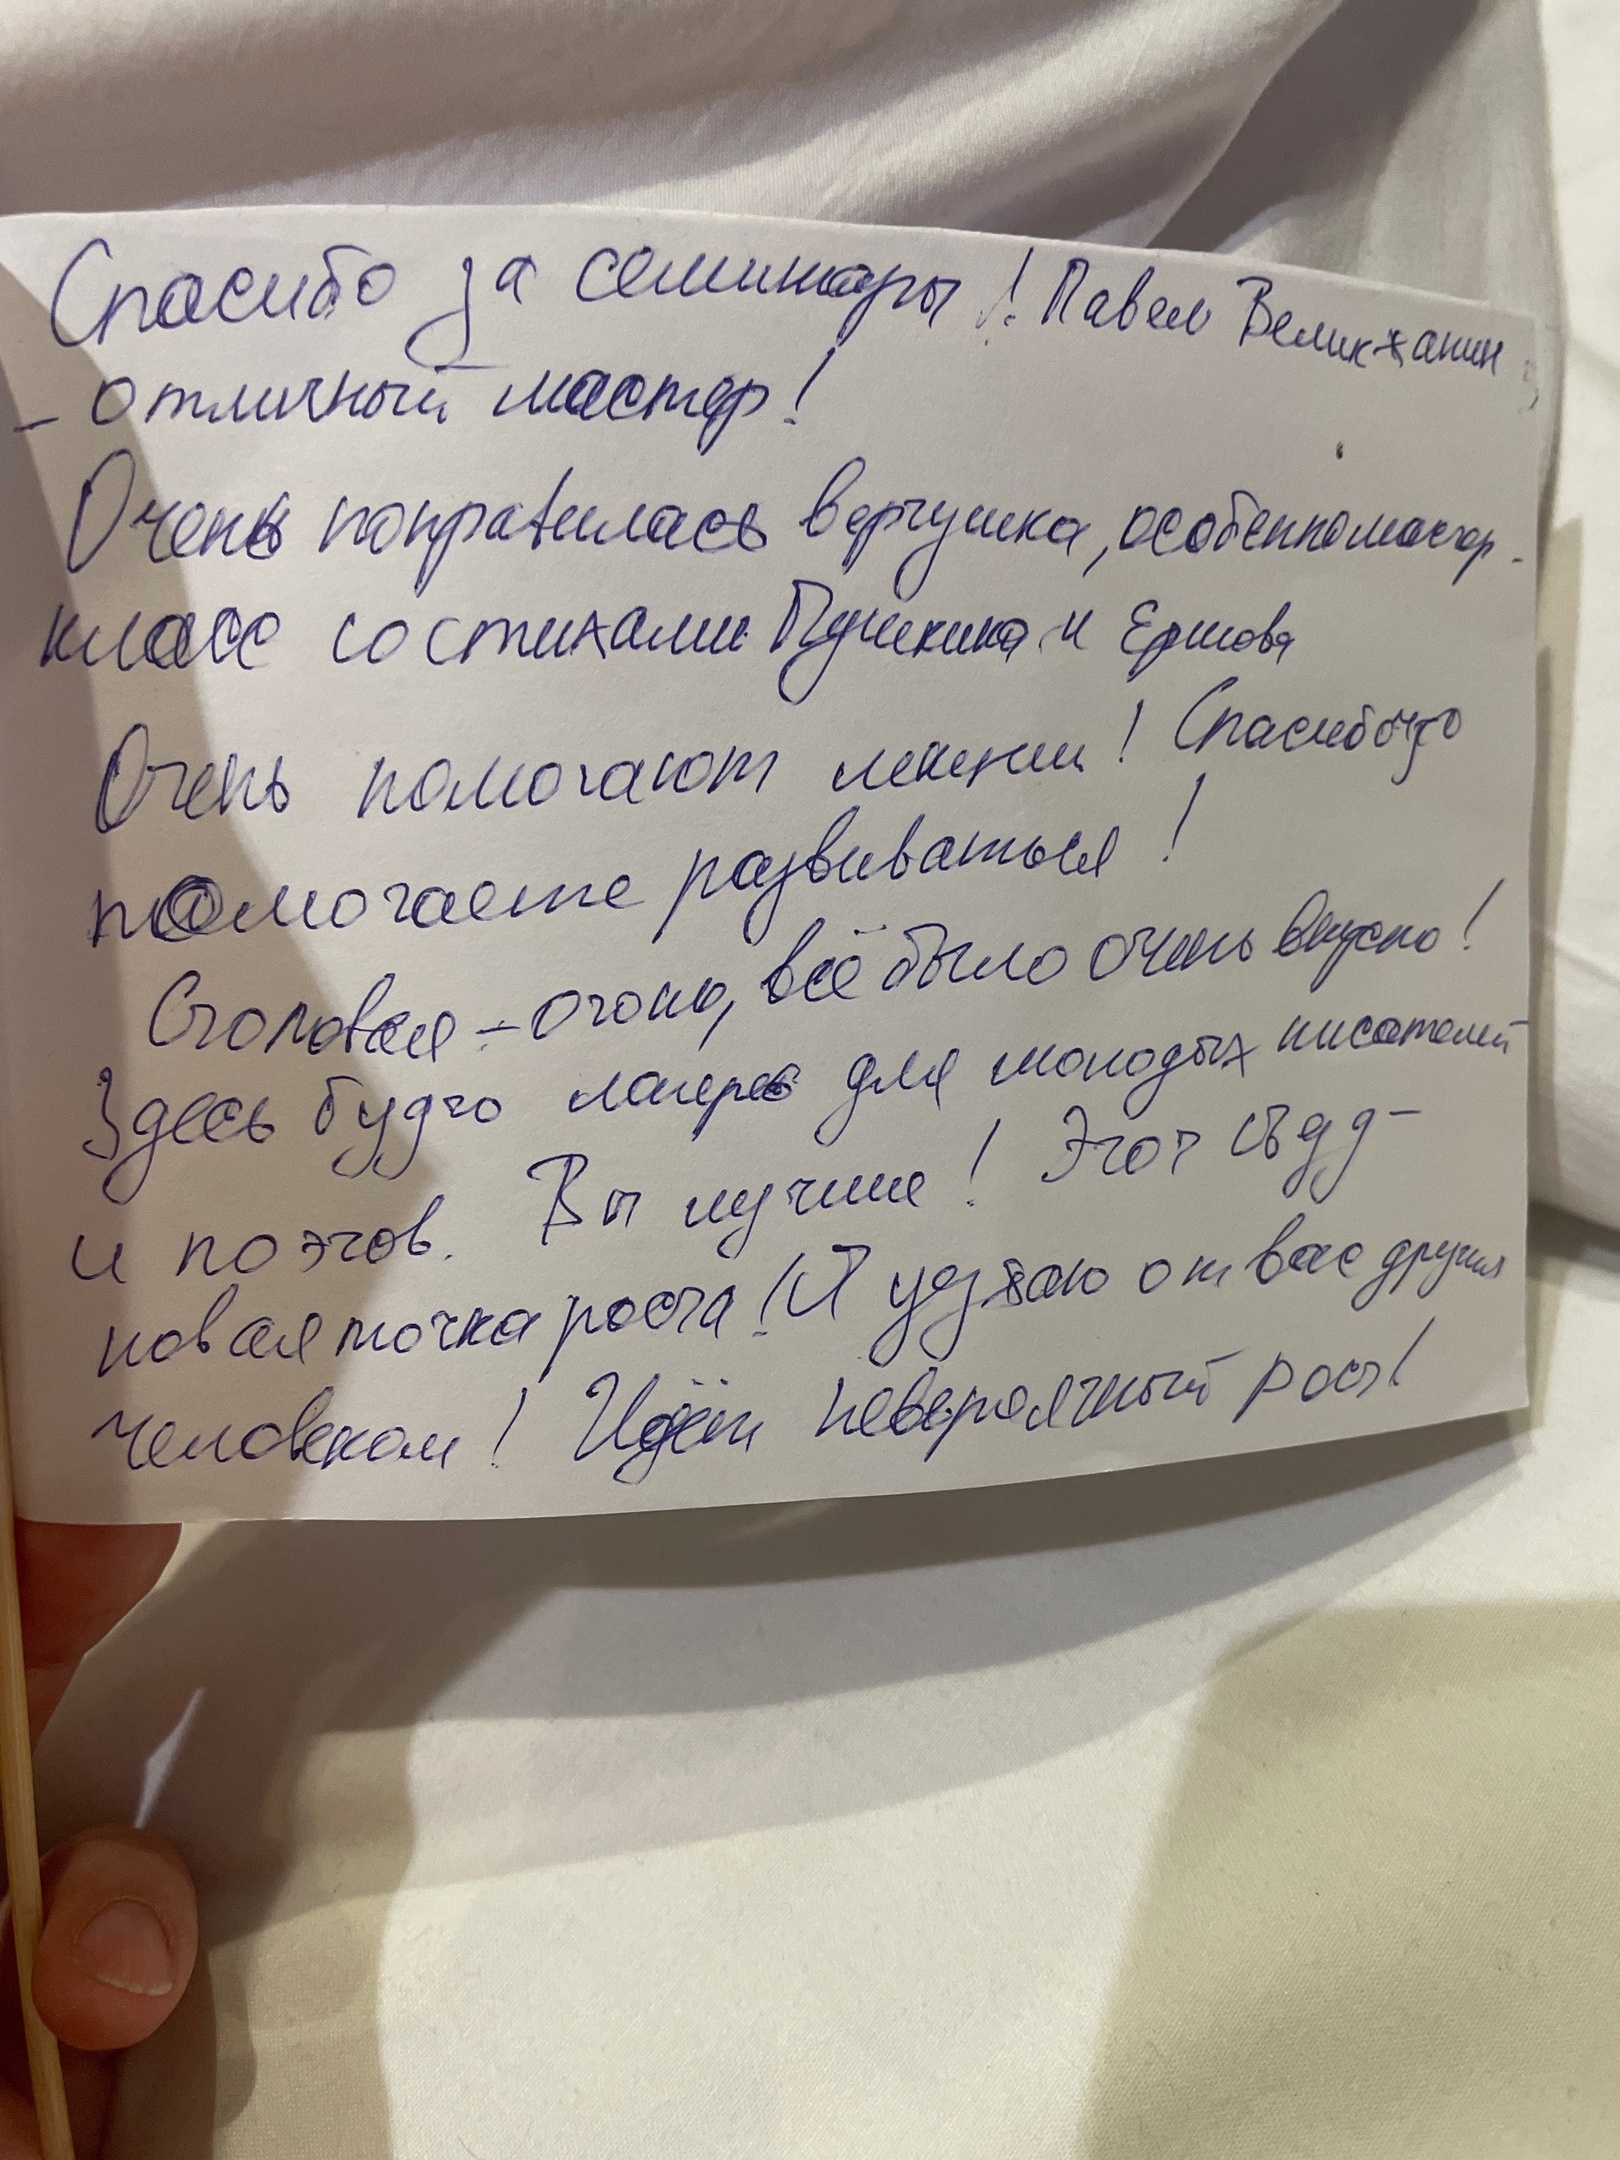 Спасибо за семинары! Павел Великжанин
- отличный мастер!
Очень понравилась вертушка, особенно мастер-
класс со стихами Пушкина и Ершова
Очень помогают лекции! Спасибо что
помогаете развиваться!
Столовая - огонь, всё было очень вкусно!
Здесь будто лагерь для молодых писателей
и поэтов. Вы лучшие! Этот съезд -
новая точка роста! Я уезжаю от вас другим
человеком! Идёт невероятный рост!